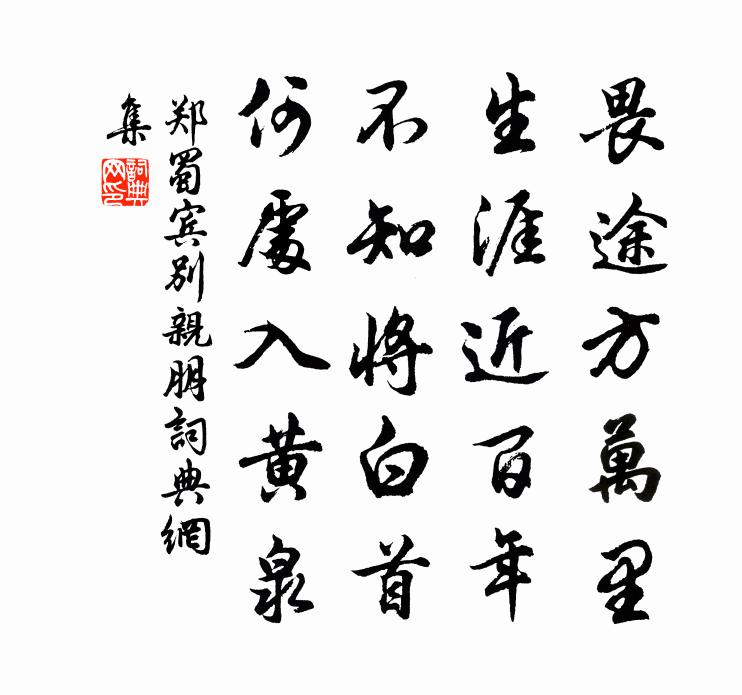 畏途方萬里
生涯近百年
不知將白首
何處入黄泉
郑蜀宾别親朋詞典網
集
詞典網印